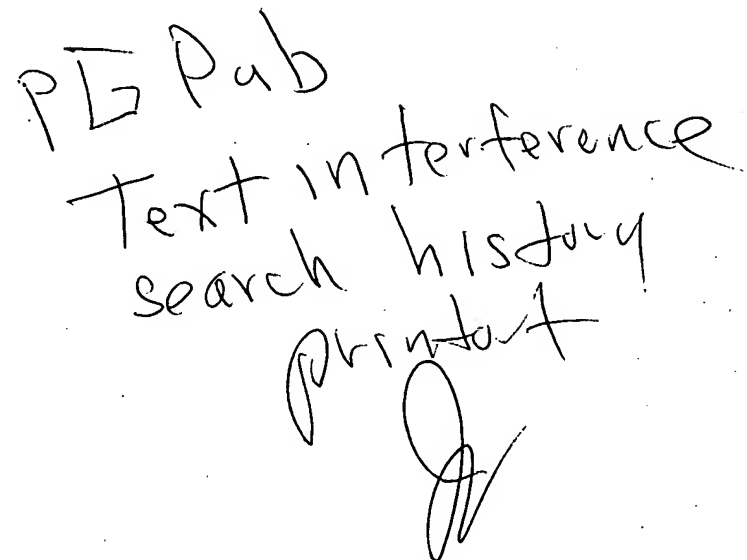 PG Pub
Text interference
search history
printout